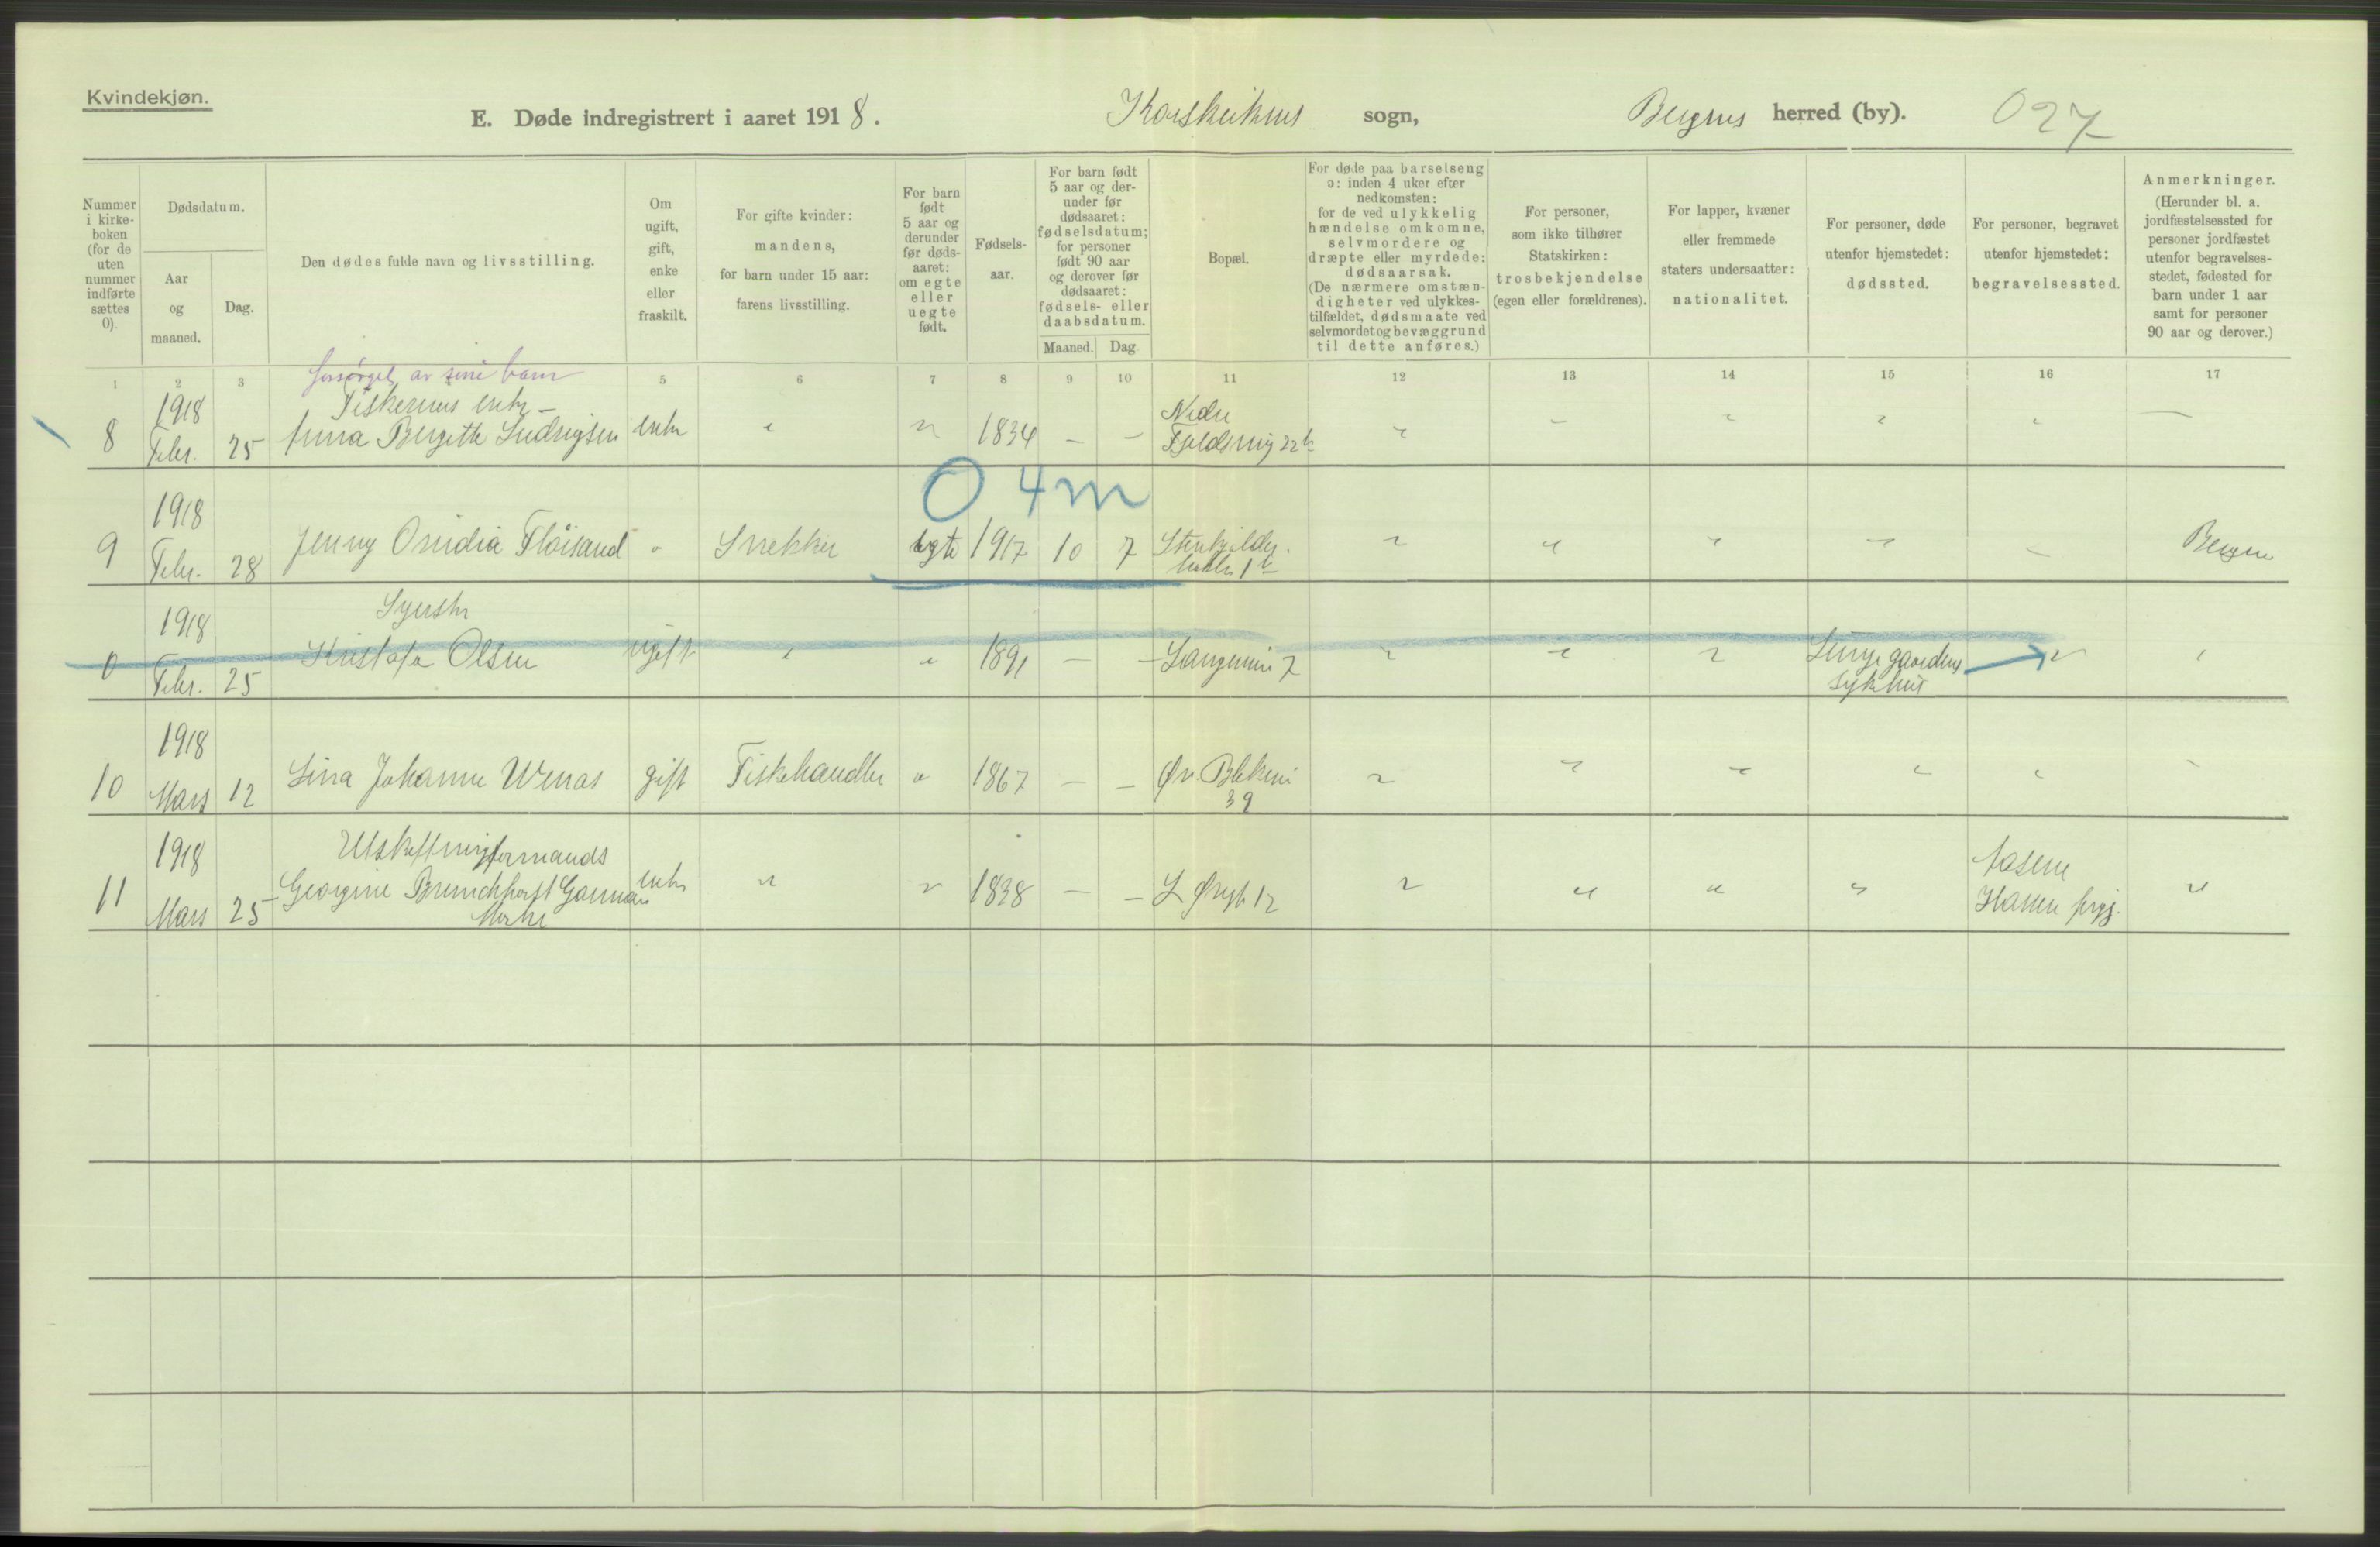 Kvindekjøn.
E. Døde indregistrert i aaret 1918. Korskirkens sogn, Bergens herred (by). 027
Nummer i kirkeboken (for de uten nummer indførte sættes 0).
Dødsdatum.
Aar og maaned.
Dag.
Den dødes fulde navn og livsstilling.
Om ugift, gift, enke eller fraskilt.
For gifte kvinder: mandens, for barn under 15 aar: farens livsstilling.
For barn født 5 aar og derunder før dødsaaret: om egte eller uegte født.
Fødselsaar.
For barn født 5 aar og derunder før dødsaaret: fødselsdatum; for personer født 90 aar og derover før dødsaaret: fødsels- eller daabsdatum.
Maaned. Dag
Bopæl.
For døde paa barselseng ɔ: inden 4 uker efter nedkomsten: for de ved ulykkelig hændelse omkomne, selvmordere og dræpte eller myrdede: dødsaarsak. (De nærmere omstændigheter ved ulykkestilfældet, dødsmaate ved selvmordet og bevæggrund til dette anføres.)
For personer, som ikke tilhører Statskirken: trosbekjendelse (egen eller forældrenes).
For lapper, kvæner eller fremmede staters undersaatter: nationalitet.
For personer, døde utenfor hjemstedet: dødssted.
For personer, begravet utenfor hjemstedet: begravelsessted.
Anmerkninger. (Herunder bl. a. jordfæstelsessted for personer jordfæstet utenfor begravelsesstedet, fødested for barn under 1 aar samt for personer 90 aar og derover.)
1 2 3 5 6 7 8 9 10 11 12 13 14 15 16 17
forsørget av sine barn
1918 Fiskerens enke - Nedre
8 Febr. 25 Anna Bergette Ludvigsen enke " " 1834 – – Fjeldsmug 22b " – " " " –
0 4 m
1918
9 Febr. 28 Jenny Ovidia Fløisand " Snekker egte 1917 10 7 Stenkjelder- " " " " – Bergen
1 b
1918 Syerske
0 Febr. 25 Kristofa Olsen ugift " " 1891 – – 7 " " " Lungegaardens " "
sykehus
1918
10 Mars 12 Lina Johanne Wenas gift Fiskehandler " 1867 – – Øv. Blekevei " " " " " "
39
1918 Utskiftningsformands
11 Mars 25 Georgine enke " " 1838 – – 12 " " " " "
Mohr